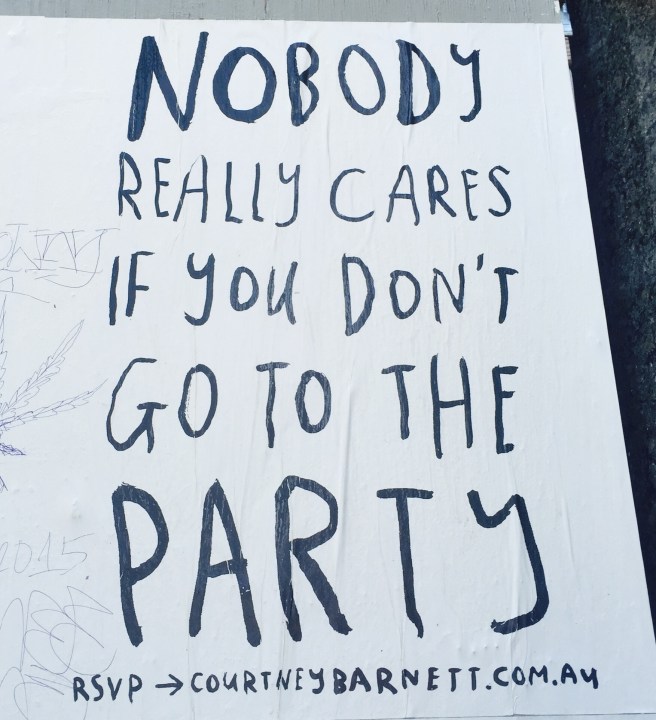 NOBODY
REALLY CARES
IF YOU DON'T
GO TO THE
PARTY
RSVP → COURTNEYBARNETT.COM.AU
2015